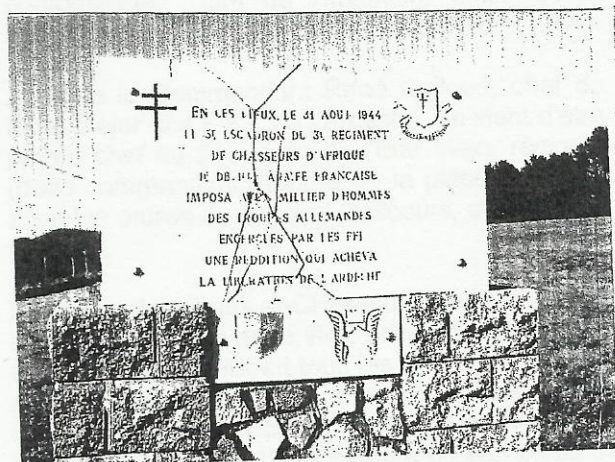 EN CES LIEUX, LE 31 AOUT 1944
LE 5E ESCADRON DU 3E REGIMENT
DE CHASSEURS D'AFRIQUE
1E DB 1ERE ARMEE FRANCAISE
IMPOSA A UN MILLIER D'HOMMES
DES TROUPES ALLEMANDES
ENCERCLES PAR LES FFI
UNE REDDITION QUI ACHEVA
LA LIBERATION DE L'ARDECHE